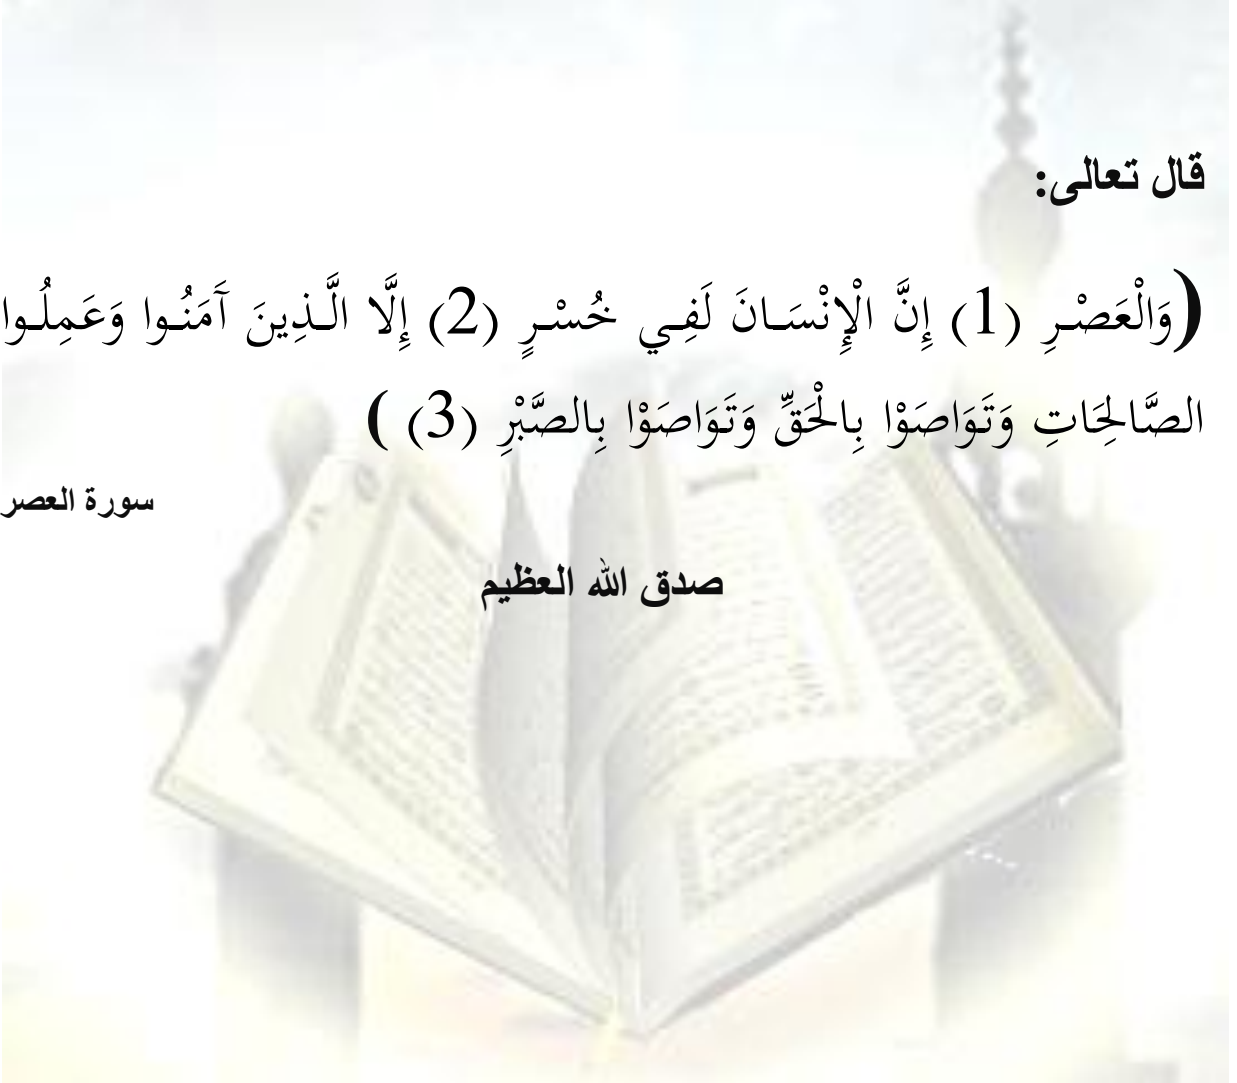 قال تعالى:
(وَالْعَصْرِ (1) إِنَّ الْإِنْسَانَ لَفِي خُسْرٍ (2) إِلَّا الَّذِينَ آَمَنُوا وَعَمِلُوا
الصَّالِحَاتِ وَتَوَاصَوْا بِالْحَقِّ وَتَوَاصَوْا بِالصَّبْرِ (3) )
سورة العصر
صدق الله العظيم